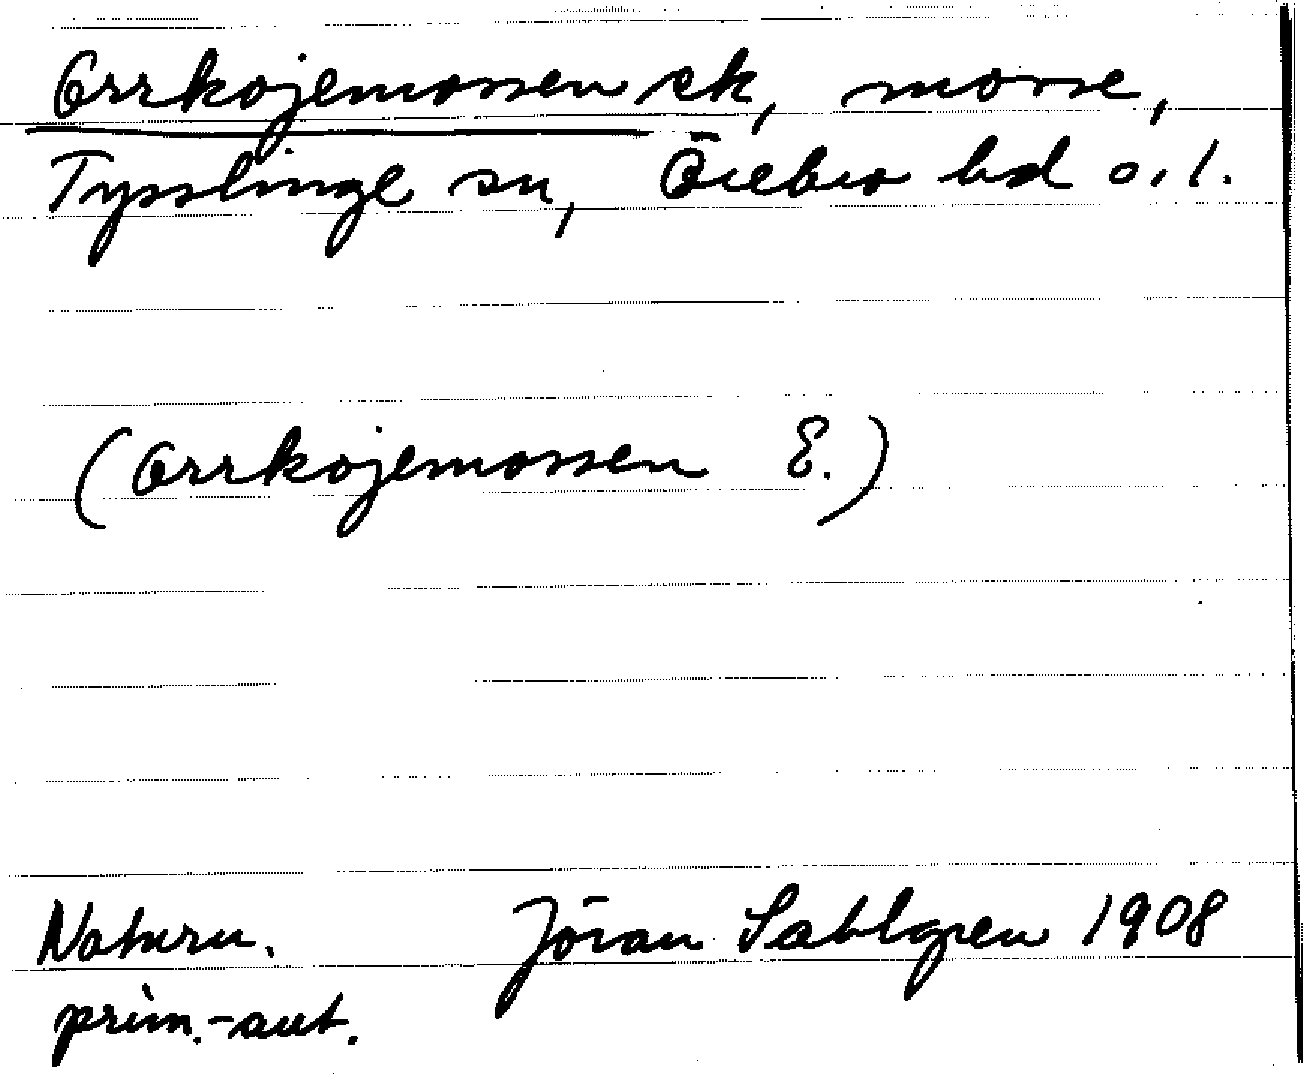 Orrkojemossen ek, mosse,
Tysslinge sn, Örebro hd o. l.
(Orrkojemossen E.)
Naturn. Jöran Sahlgren 1908
prim.-aut.